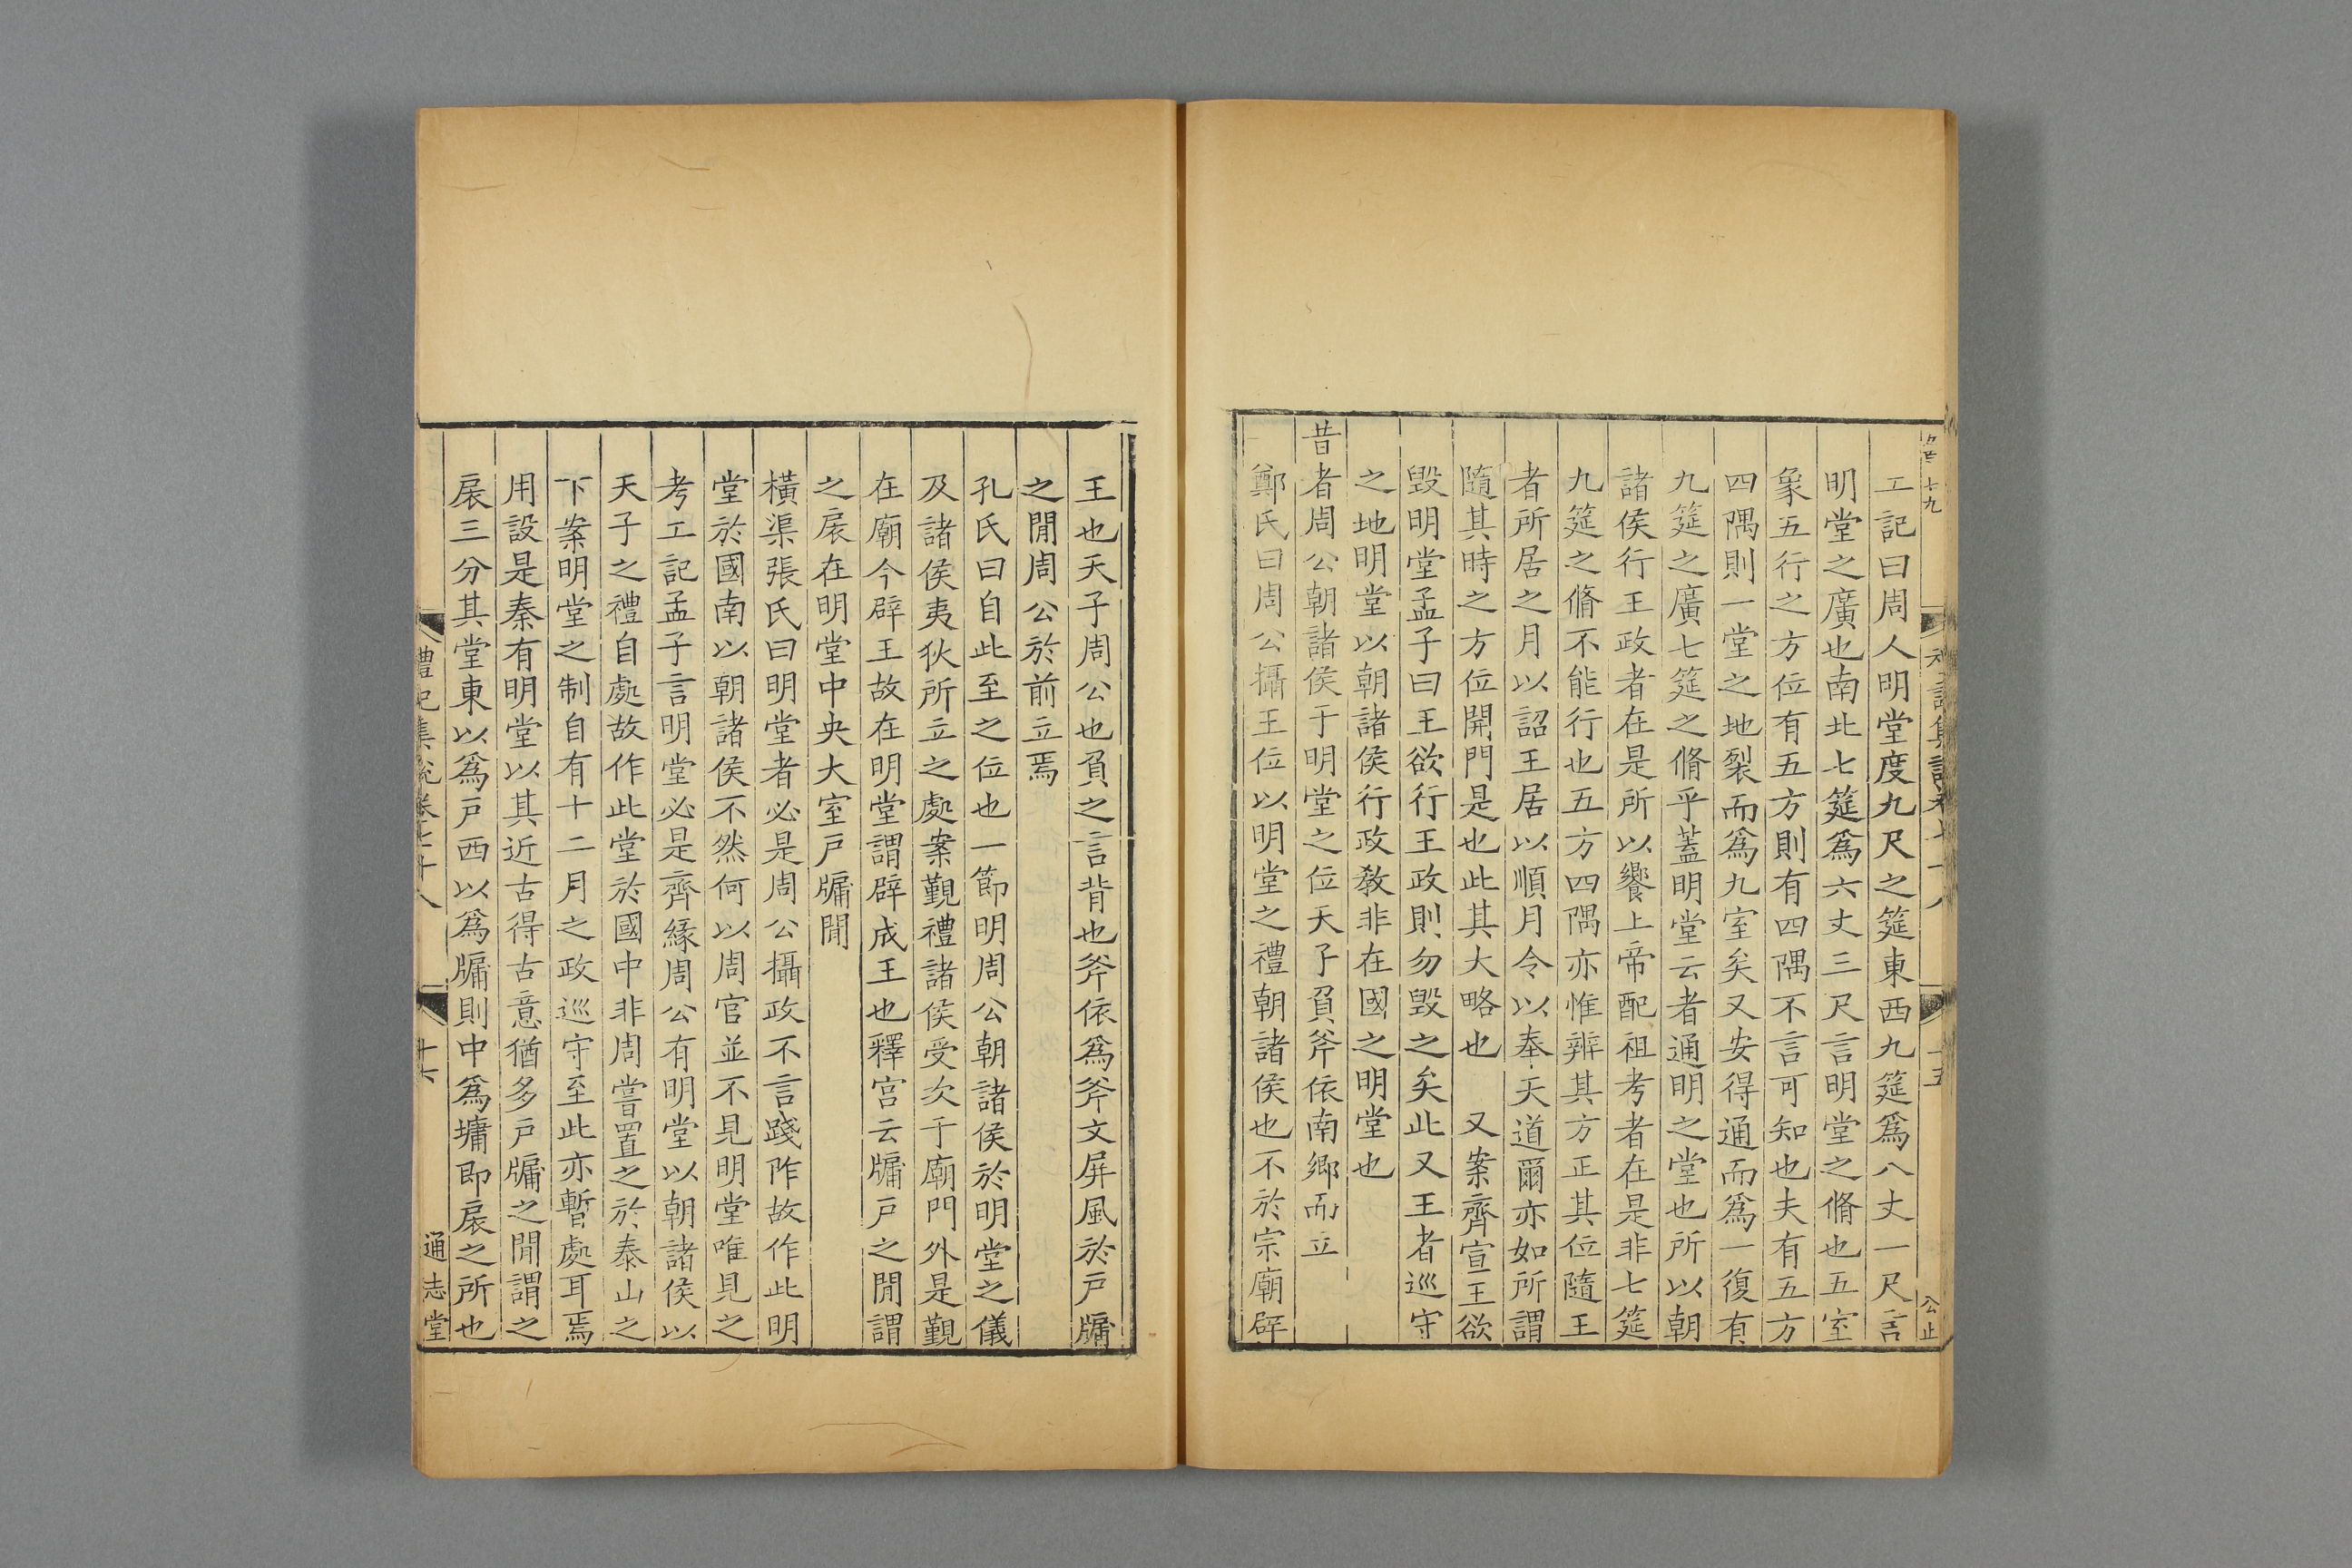 工記曰周人明堂度九尺之筵東西九筵爲八丈一尺言
明堂之廣也南北七筵爲六丈三尺言明堂之脩也五室
象五行之方位有五方則有四隅不言可知也夫有五方
四隅則一堂之地裂而爲九室矣又安得通而爲一復有
九筵之廣七筵之脩乎蓋明堂云者通明之堂也所以朝
諸侯行王政者在是所以饗上帝配祖考者在是非七筵
九筵之脩不能行也五方四隅亦惟辨其方正其位隨王
者所居之月以詔王居以順月令以奉天道爾亦如所謂
隨其時之方位開門是也此其大略也 又案齊宣王欲
毁明堂孟子曰王欲行王政則勿毁之矣此又王者巡守
之地明堂以朝諸侯行政敎非在國之明堂也
昔者周公朝諸侯于明堂之位天子負斧依南鄉而立
鄭氏曰周公攝王位以明堂之禮朝諸侯也不於宗廟辟
王也天子周公也負之言背也斧依爲斧文屏風於戸牖
之閒周公於前立焉
孔氏曰自此至之位也一節明周公朝諸侯於明堂之儀
及諸侯夷狄所立之處案覲禮諸侯受次于廟門外是覲
在廟今辟王故在明堂謂辟成王也釋宫云牖戸之閒謂
之扆在明堂中央大室戸牖閒
橫渠張氏曰明堂者必是周公攝政不言踐阼故作此明
堂於國南以朝諸侯不然何以周官並不見明堂唯見之
考工記孟子言明堂必是齊緣周公有明堂以朝諸侯以
天子之禮自處故作此堂於國中非周嘗置之於泰山之
下案明堂之制自有十二月之政巡守至此亦暫處耳焉
用設是秦有明堂以其近古得古意猶多戸牖之閒謂之
扆三分其堂東以爲戸西以爲牖則中爲墉即扆之所也
禮記集說卷七十八 十六 通志堂